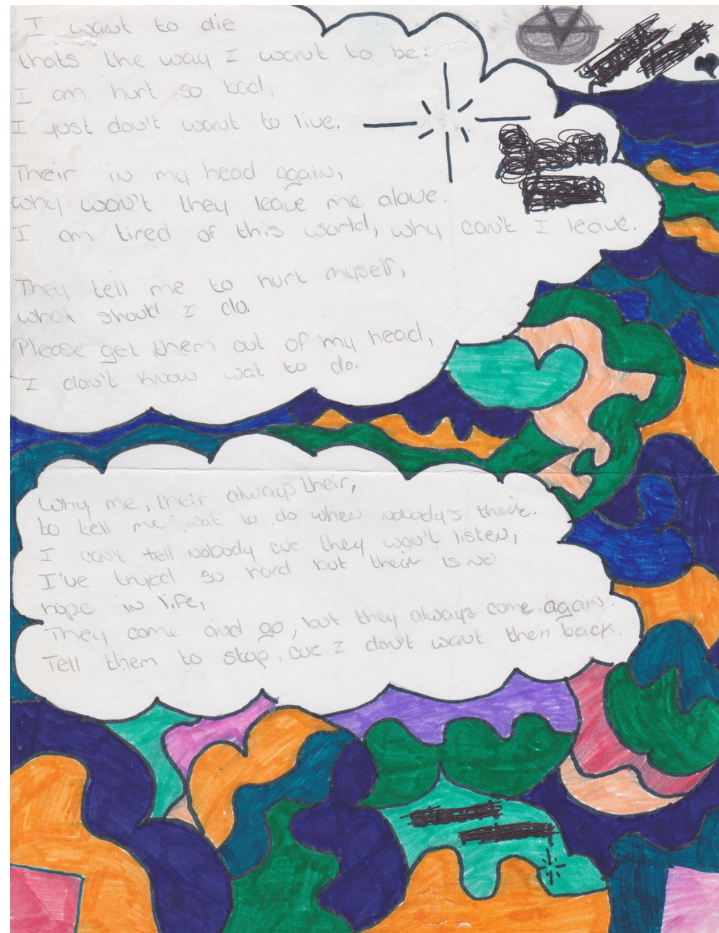 I want to die
thats the way I want to be.
I am hurt so bad,
I just don't want to live.
Their in my head again,
why won't they leave me alone.
I am tired of this world, why can't I leave.
They tell me to hurt myself,
what should I do.
Please get them out of my head,
I don't know wat to do.
Why me, their always their,
to tell me wat to do when nobody's their.
I can't tell nobody cuc they won't listen,
I've tryed so hard but their is no
hope in life,
They come and go, but they always come again.
Tell them to stop, cuc I don't want them back.